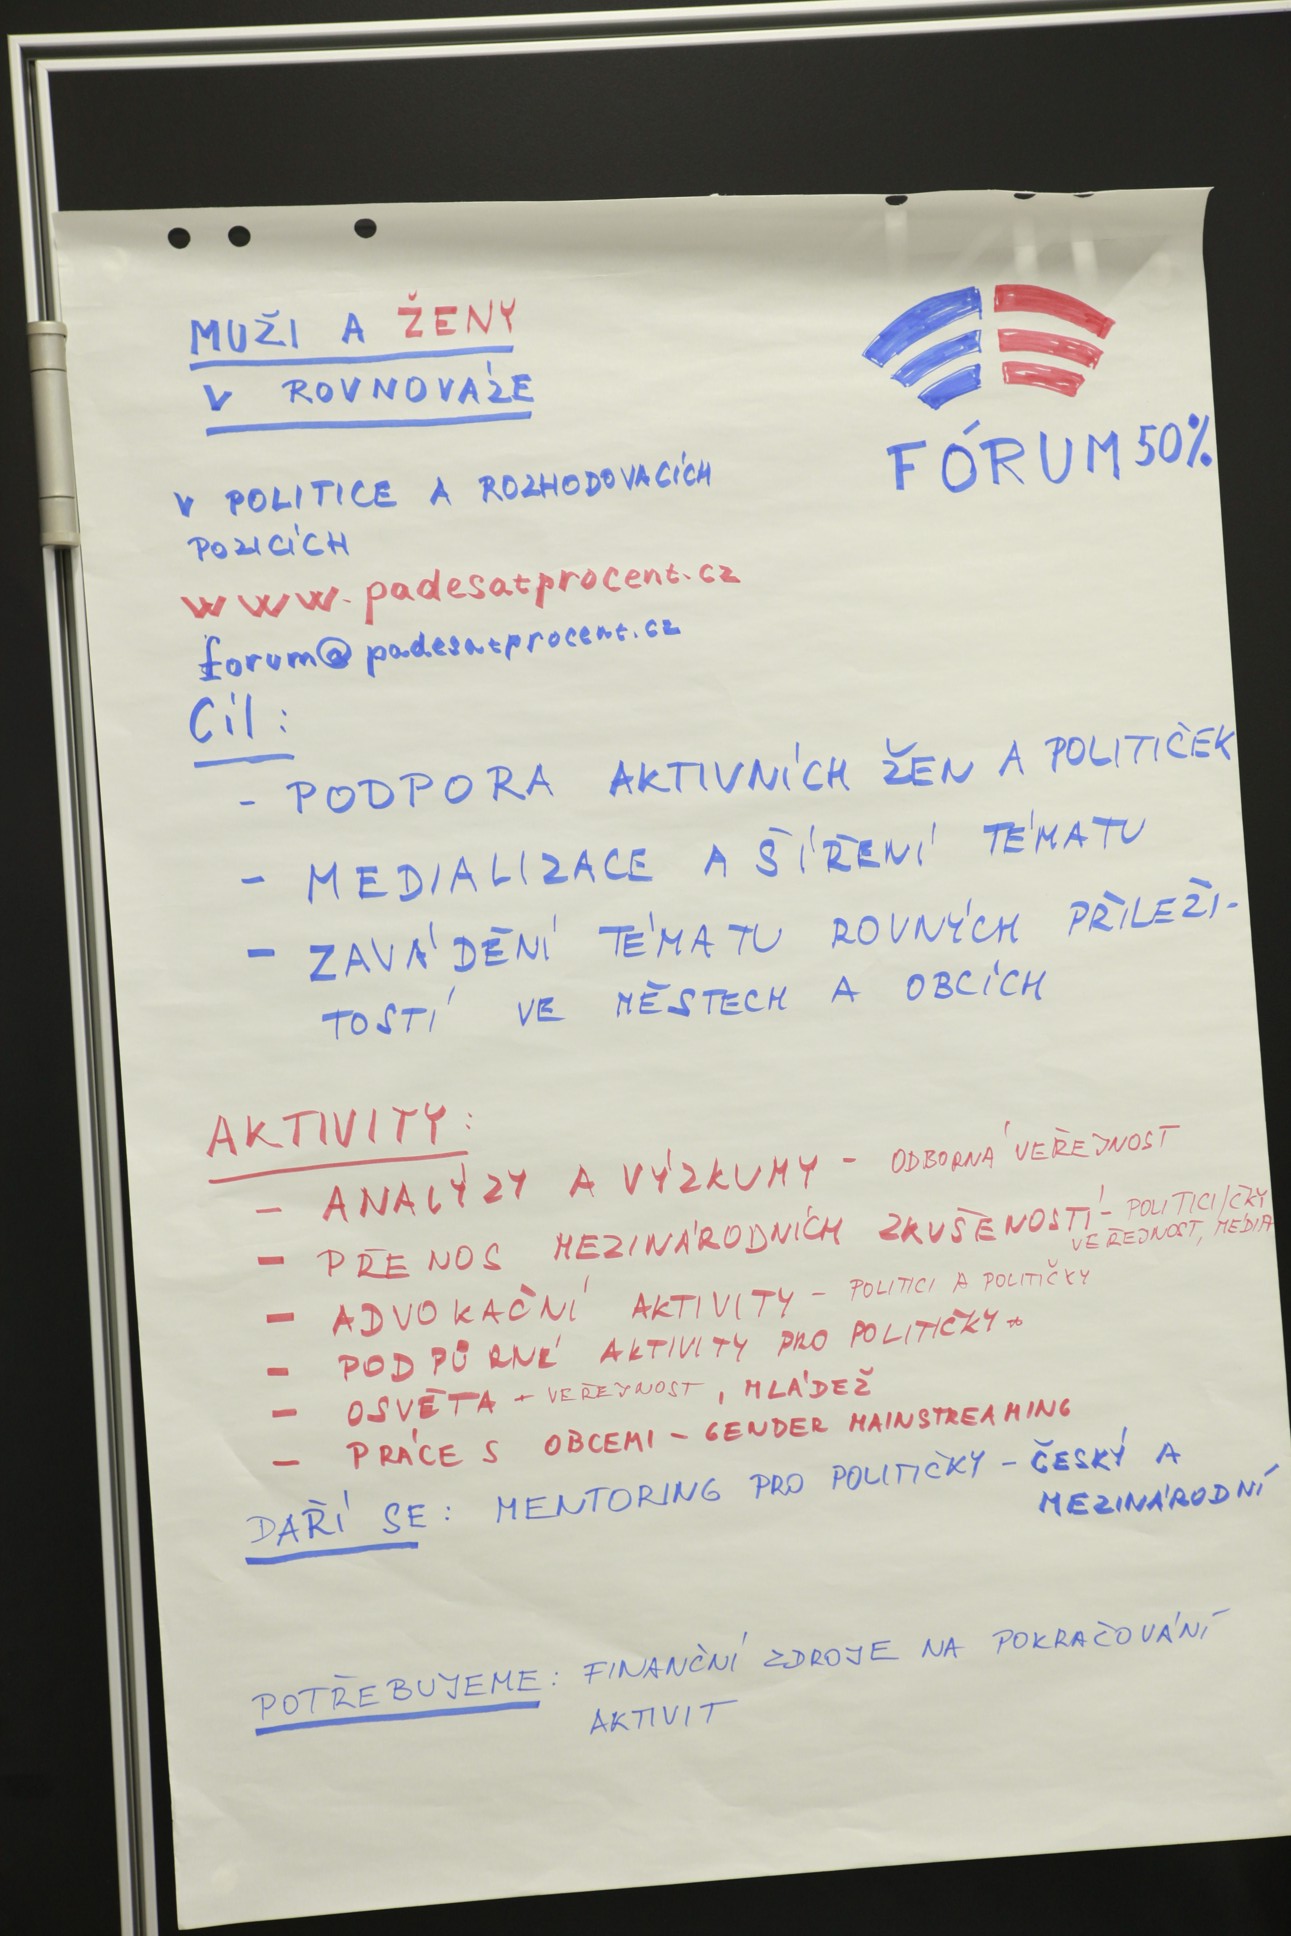 MUŽI A ŽENY
V ROVNOVÁZE
FÓRUM 50%
V POLITICE A ROZHODOVACÍCH
POZICÍCH
www.padesatprocent.cz
forum@padesatprocent.cz
Cíl:
- PODPORA AKTIVNÍCH ŽEN A POLITIČEK
- MEDIALIZACE A ŠÍŘENÍ TÉMATU
- ZAVÁDĚNÍ TÉMATU ROVNÝCH PŘÍLEŽI-
TOSTÍ VE MĚSTECH A OBCÍCH
AKTIVITY:
- ANALÝZY A VÝZKUMY - ODBORNÁ VEŘEJNOST
- PŘENOS MEZINÁRODNÍCH ZKUŠENOSTÍ - POLITICI/ČKY
VEŘEJNOST, MÉDIA
- ADVOKAČNÍ AKTIVITY - POLITICI A POLITIČKY
- PODPŮRNÉ AKTIVITY PRO POLITIČKY
- OSVĚTA - VEŘEJNOST, MLÁDEŽ
- PRÁCE S OBCEMI - GENDER MAINSTREAMING
DAŘÍ SE: MENTORING PRO POLITIČKY - ČESKÝ A
MEZINÁRODNÍ
POTŘEBUJEME: FINANČNÍ ZDROJE NA POKRAČOVÁNÍ
AKTIVIT